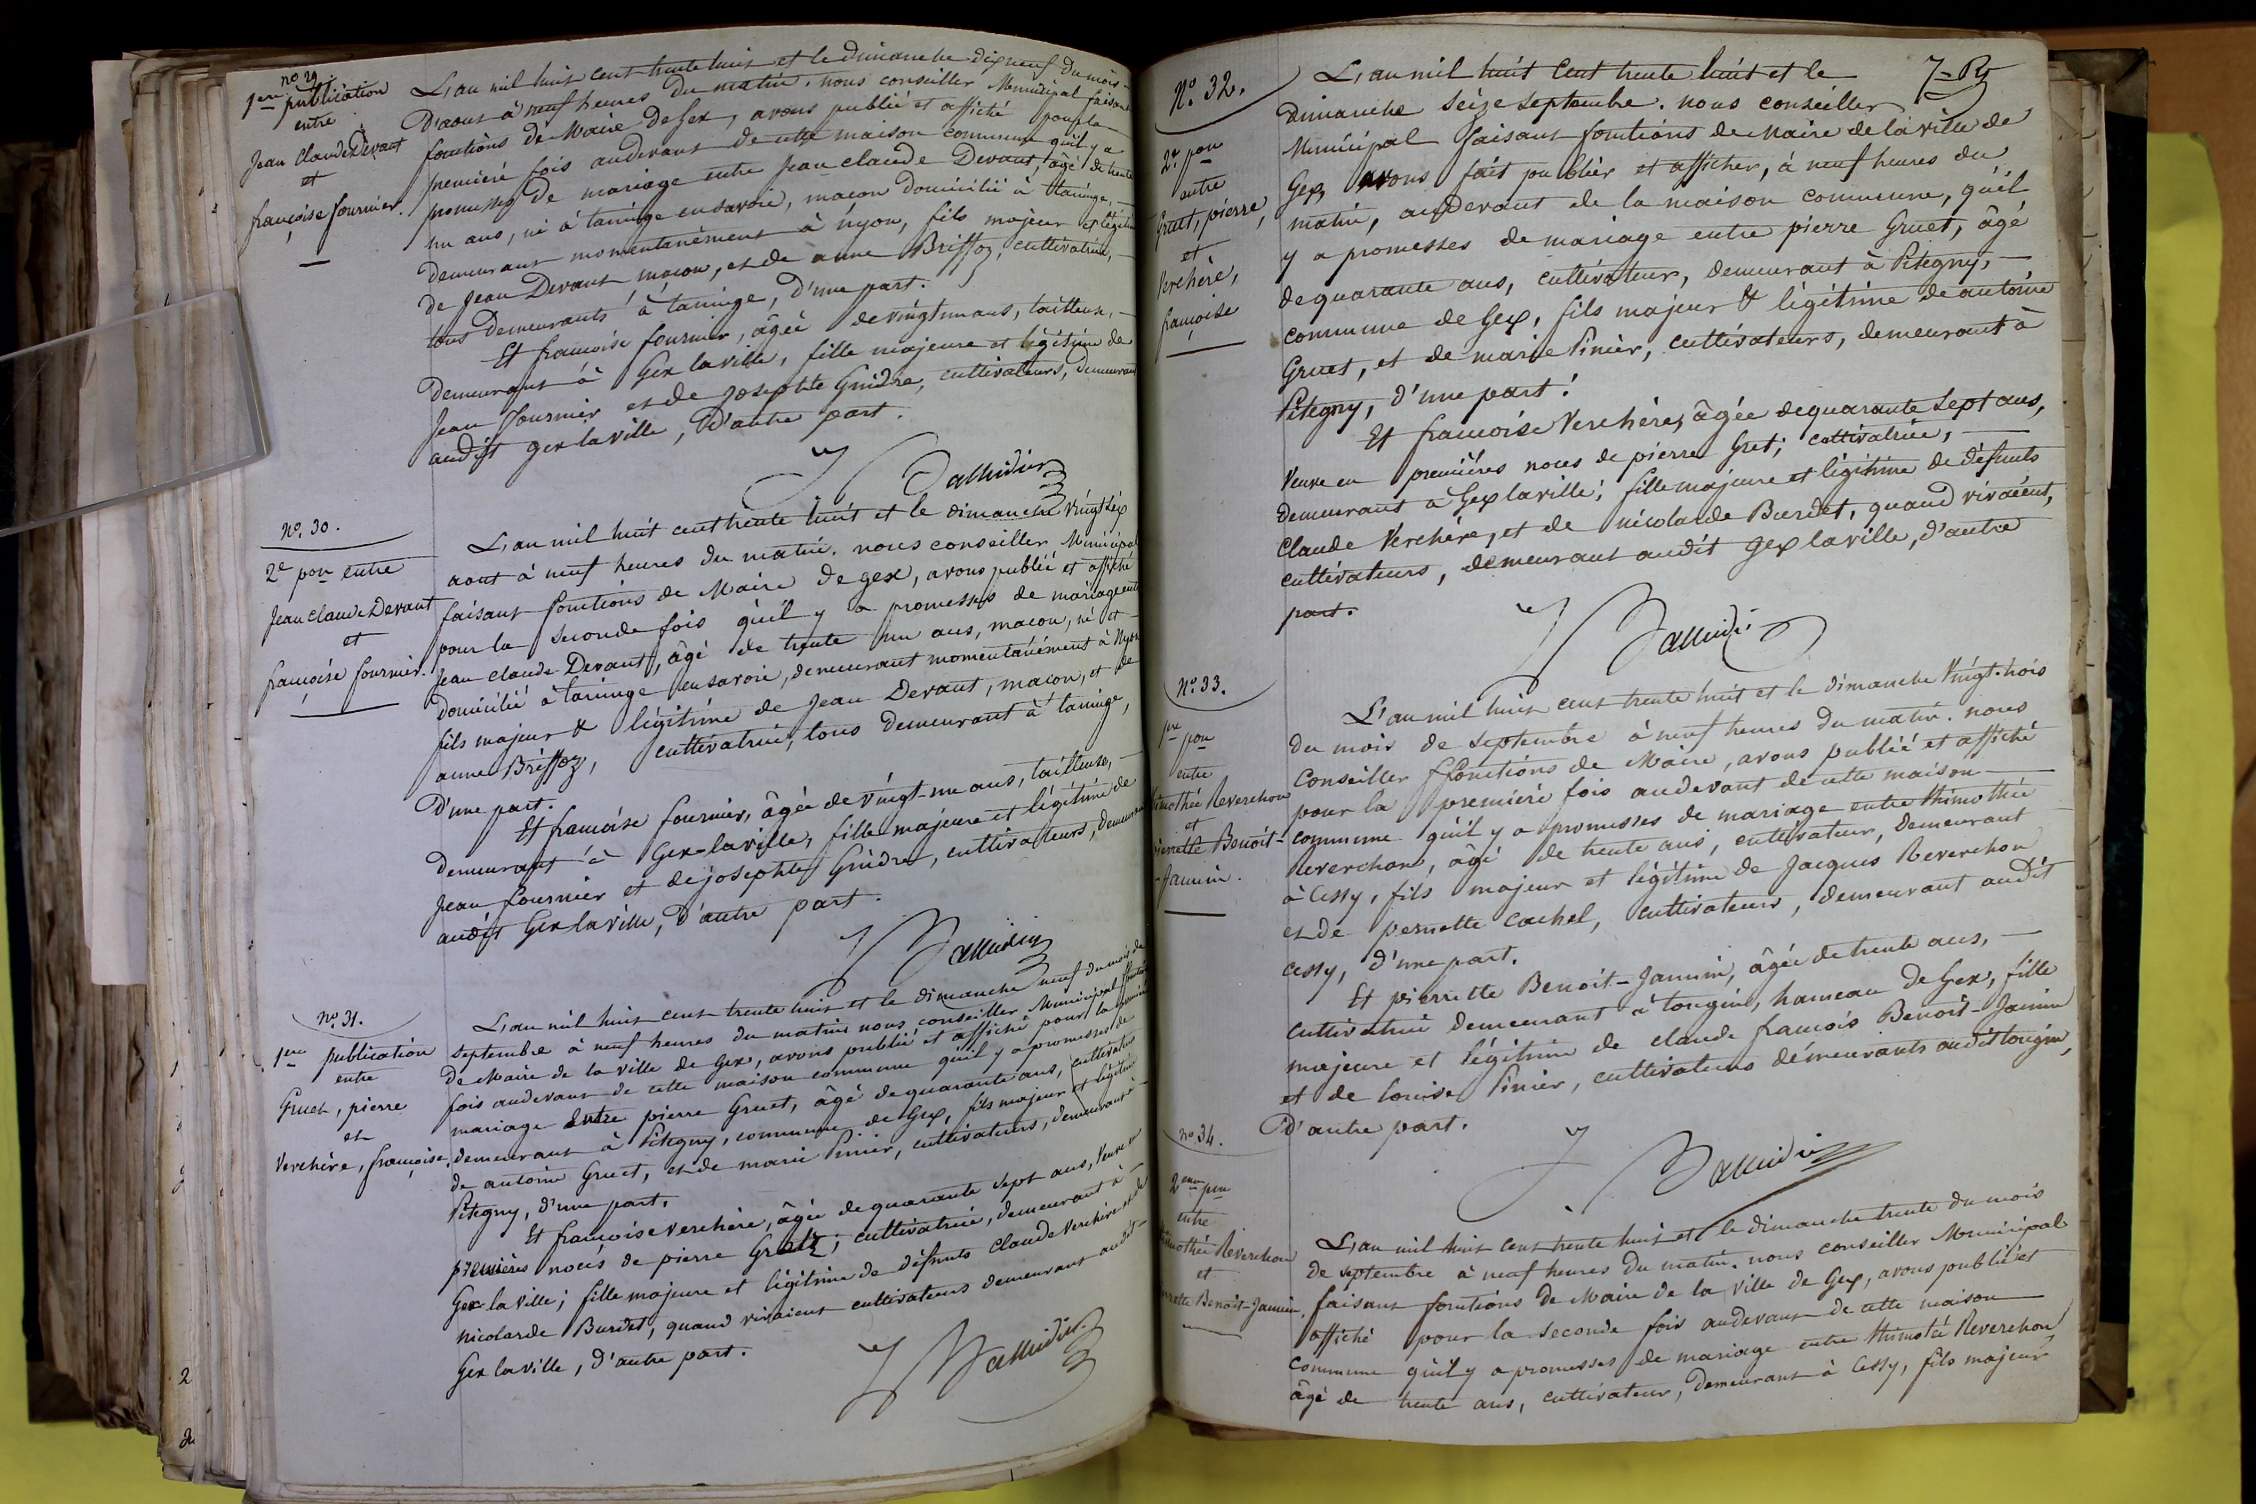 no 29
1ere publication
entre
Jean Claude Devant
et
françoise fournier.
L'an mil huit cent trente huit et le dimanche dix neuf du mois
d'aout à neuf heures du matin. nous conseiller Municipal faisant
fonctions de Maire de Gex, avons publié et affiché pour la
première fois audevant de cette maison commune qu'il y a
promesses de mariage entre Jean claude Devant, âgé de trente
un ans, né à taninge en savoie, maçon domicilié à taninge,
demeurant momentanément à nyon, fils majeur et légitime
de Jean Devant maçon, et de anne Briffoz, cultivatrice,
tous demeurants à taninge, d'une part.
Et françoise fournier, âgée de vingt un ans, tailleuse,
demeurant à Gex la ville, fille majeure et légitime de
Jean fournier et de Josephte Guidre, cultivateurs, demeurant
audit gex la ville, d'autre part.
No. 30.
2e pon entre
Jean claude Devant
et
françoise fournier.
L'an mil huit cent trente huit et le dimanche vingt six
aout à neuf heures du matin. nous conseiller Municipal
faisant fonctions de Maire de gex, avons publié et affiché
pour la seconde fois qu'il y a promesses de mariage entre
Jean claude Devant, âgé de trente un ans, macon, né et
domicilié à taninge en savoie, demeurant momentanément à Nyon
fils majeur & légitime de Jean Devant, macon, et de
anne Briffoz, cultivatrice, tous demeurant à taninge,
D'une part.
Et françoise fournier, âgée de vingt-un ans, tailleuse,
demeurant à Gex-la ville, fille majeure et légitime de
Jean fournier et de josephte Guidre, cultivateurs, demeurant
audit Gex la ville, d'autre part.
no. 31.
1ere publication
entre
Gruet, pierre
et
Verchère, françoise.
L'an mil huit cent trente huit et le dimanche neuf du mois de
septembre à neuf heures du matin nous conseiller Municipal
de Maire de la ville de Gex, avons publié et affiché pour la première
fois audevant de cette maison commune qu'il y a promesses de
mariage entre pierre Gruet, âgé de quarante ans, cultivateur
demeurant à Pitegny, commune de Gex, fils majeur et légitime
de antoine Gruet, et de marie Pinier, cultivateurs, demeurant à
Pitegny, d'une part.
Et françoise Verchère, âgée de quarante sept ans, Veuve en
premières noces de pierre ; cultivatrice, demeurant à
Gex la ville ; fille majeure et légitime de défunts claude Verchère et de
nicolarde Burdet, quand vivaient cultivateurs demeurant audit
Gex la ville, d'autre part.
No. 32.
2e pon
entre
Gruet, pierre,
et
Verchère,
françoise
L'an mil huit Cent trente huit et le
dimanche seize septembre. nous conseiller
Municipal faisant fonctions de Maire de la ville de
Gex, avons fait publier et afficher, à neuf heures du
matin, audevant de la maison commune, qu'il
y a promesses de mariage entre pierre Gruet, âgé
de quarante ans, cultivateur, demeurant à Pitegny,
commune de Gex, fils majeur & légitime de antoine
Gruet, et de marie Pinier, cultivateurs, demeurant à
Pitegny, d'une part.
Et francoise Verchère, âgée de quarante sept ans,
Veuve en premières noces de pierre Gret ; cultivatrice,
demeurant à Gex la ville ; fille majeure et légitime de défunts
Claude Verchère, et de nicolarde Burdet, quand vivaient,
cultivateurs, demeurant audit gex la ville, d'autre
part.
No. 33.
1re pon
entre
Reverchon
et
Benoit-
Jannin.
L'an mil huit cent trente huit et le dimanche Vingt-trois
du mois de septembre à neuf heures du matin. nous
conseiller ffonctions de Maire, avons publié et affiché
pour la première fois audevant de cette maison
commune qu'il y a promesses de mariage entre thimothée
Reverchon, âgé de trente ans, cultivateur, demeurant
à Cessy, fils majeur et légitime de Jacques Reverchon
et de pernette cachel, cultivateurs, demeurant audit
cessy, d'une part.
Et pierrette Benoit-Jannin, âgée de trente ans,
cultivatrice demeurant à tougin, hameau de Gex, fille
majeure et légitime de claude françois Benoit-Jannin
et de louise Pinier, cultivateurs démeurants audit tougin,
D'autre part.
no 34.
2eme pon
entre
Reverchon
et
Benoit-Jannin.
L'an mil huit cent trente huit et le dimanche trente du mois
de septembre à neuf heures du matin. nous conseiller Municipal
faisant fonctions de Maire de la ville de Gex, avons publié et
affiché pour la seconde fois audevant de cette maison
commune qu'il y a promesses de mariage entre thimotée Reverchon
âgé de trente ans, cultivateur, demeurant à Cessy, fils majeur